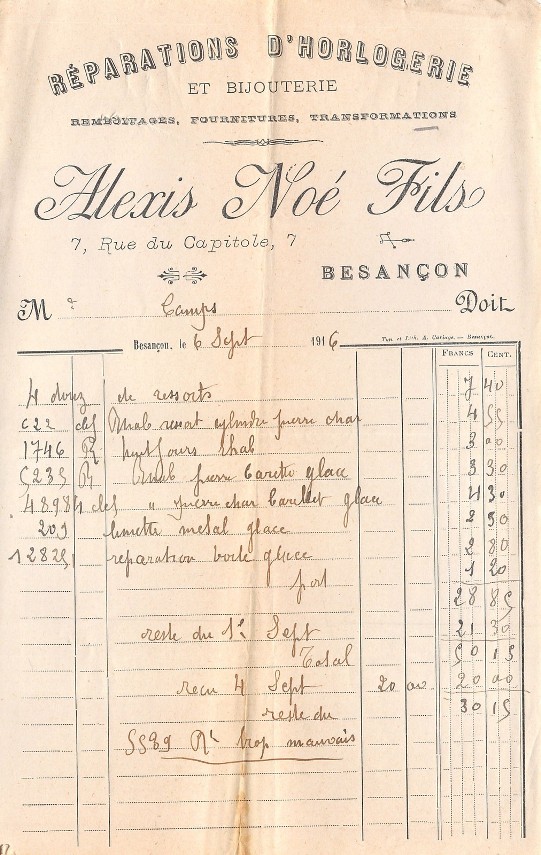 RÉPARATIONS D'HORLOGERIE
ET BIJOUTERIE
REMBOITAGES, FOURNITURES, TRANSFORMATIONS
Alexis Noé Fils
7, Rue du Capitole, 7
BESANÇON
M r Camps Doit
Besançon, le 6 Sept 1916
FRANCS CENT.
4 douz de ressorts 7 40
C22 clef Rhab ressort cylindre pierre char 4 55
1746 R huit jours rhab 3 00
5235 R Rhab pierre glace 3 30
48984 clef " pierre char glace 4 30
209 lunette metal glace 2 50
12825 reparation boite glace 2 80
port 1 20
28 85
reste du 1er Sept 21 30
Total 50 15
recu 4 Sept 20 00 20 00
reste du 30 15
5589 Rt trop mauvais